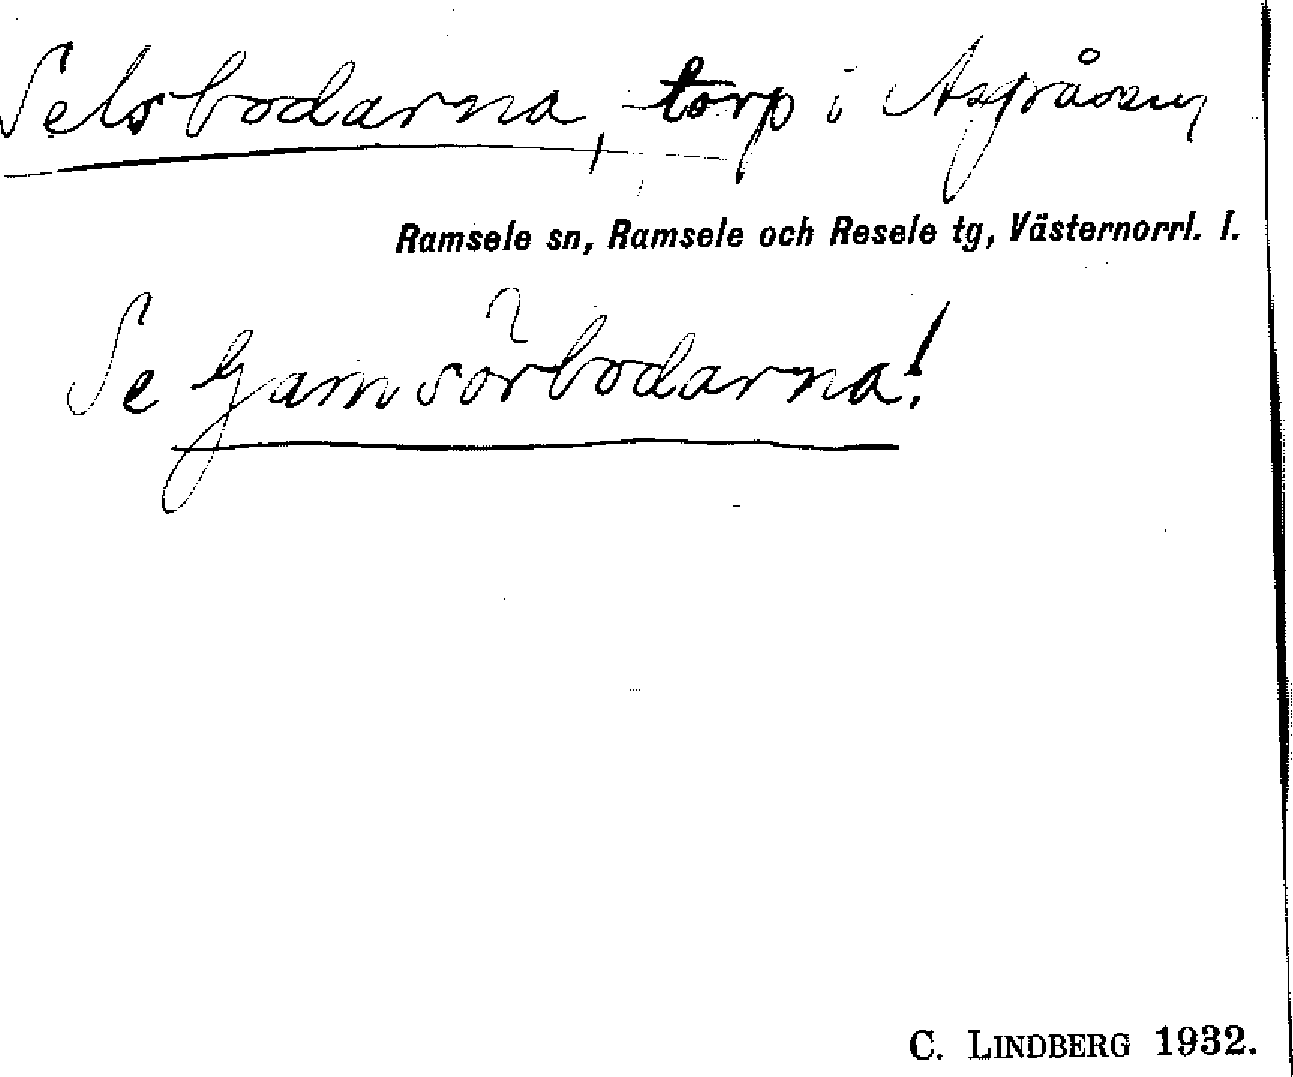 Selsbodarna, torp i
Ramsele sn, Ramsele och Resele tg, Västernorrl. l.
Se Gamsörbodarna!
C. LINDBERG 1932.